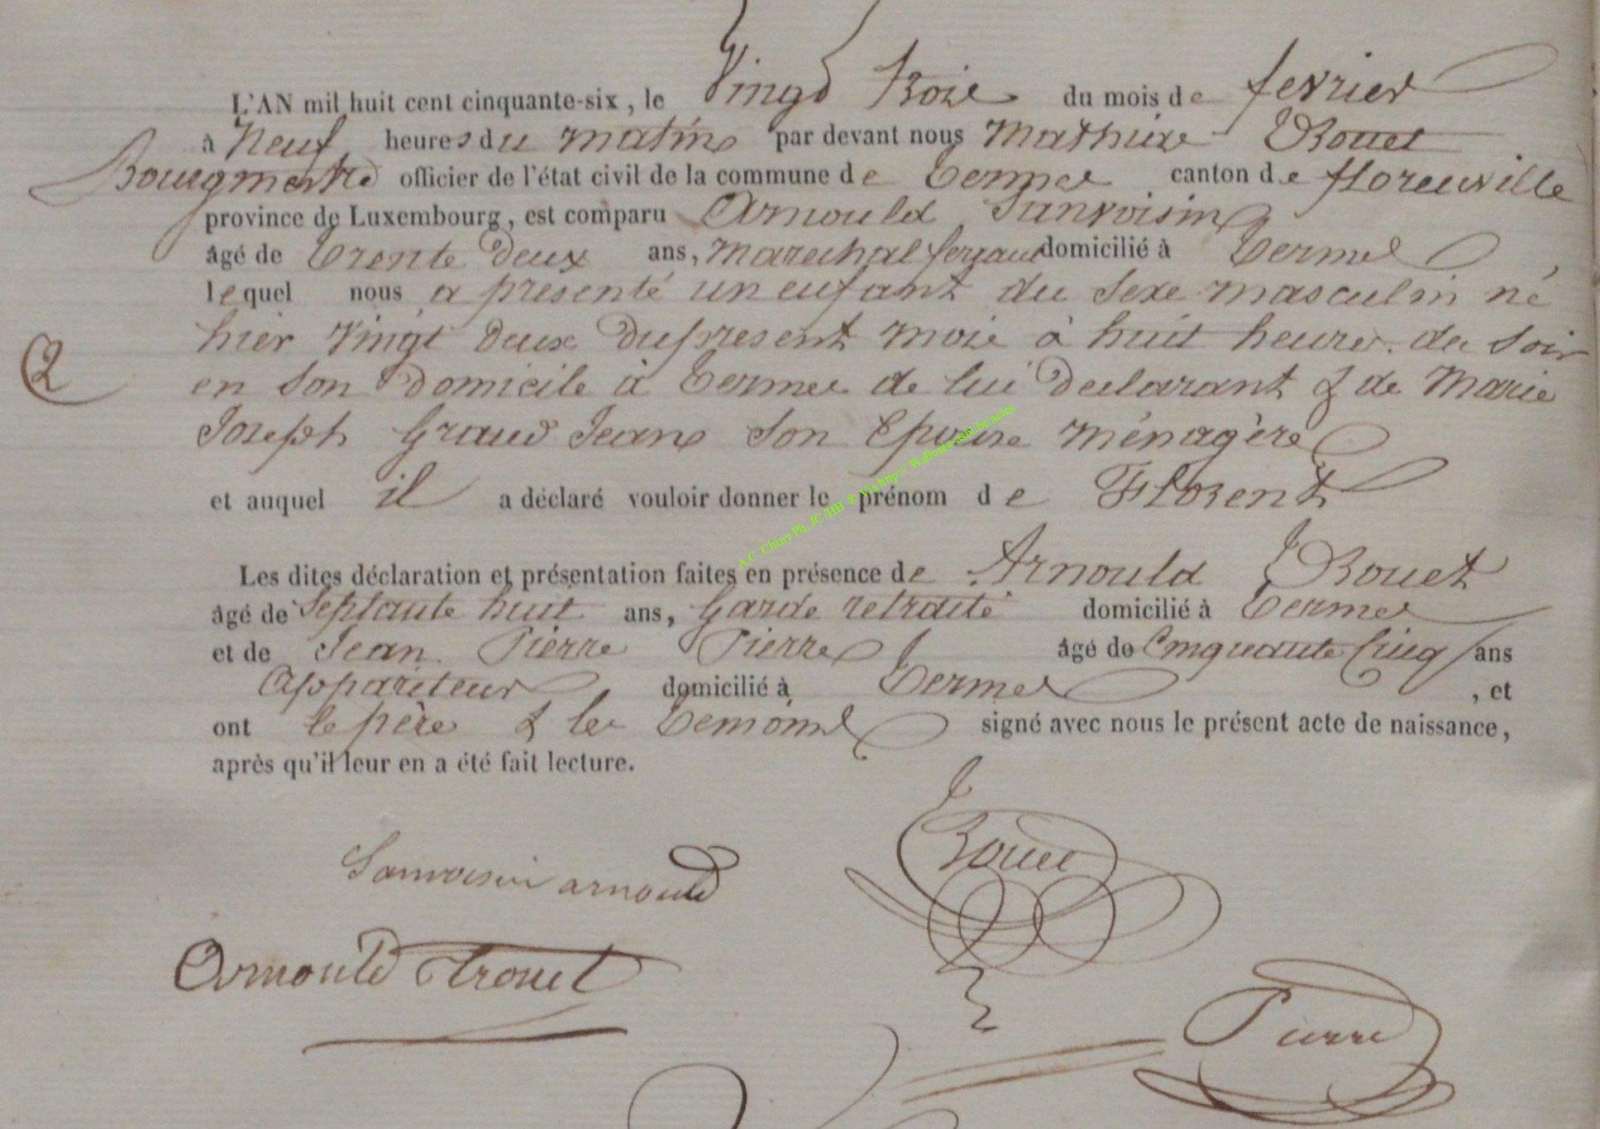 L'AN mil huit cent cinquante-six, le Vingt trois du mois de fevrier
à Neuf heures du matin par devant nous Mathieu Trouet
Bourgmestre officier de l'état civil de la commune de Termes canton de florenville
province de Luxembourg, est comparu Arnould Sanvoisin
âgé de trente deux ans, marechal ferrant domicilié à Termes
lequel nous a présenté un enfant du sexe masculin né
hier vingt deux du present mois à huit heures du soir
en son domicile à Termes de lui declarant & de Marie
Joseph Grand Jean son Epouse ménagère
et auquel il a déclaré vouloir donner le prénom de Florent
Les dites déclaration et présentation faites en présence de Arnould Trouet
âgé de Septante huit ans, Garde retraité domicilié à Termes
et de Jean Pierre Pierre âgé de Cinquante Cinq ans
Appariteur domicilié à Termes , et
ont le père & les temoins signé avec nous le présent acte de naissance,
après qu'il leur en a été fait lecture.
2
Sanvoisin arnould
Trouet
Arnould Trouet
Pierre